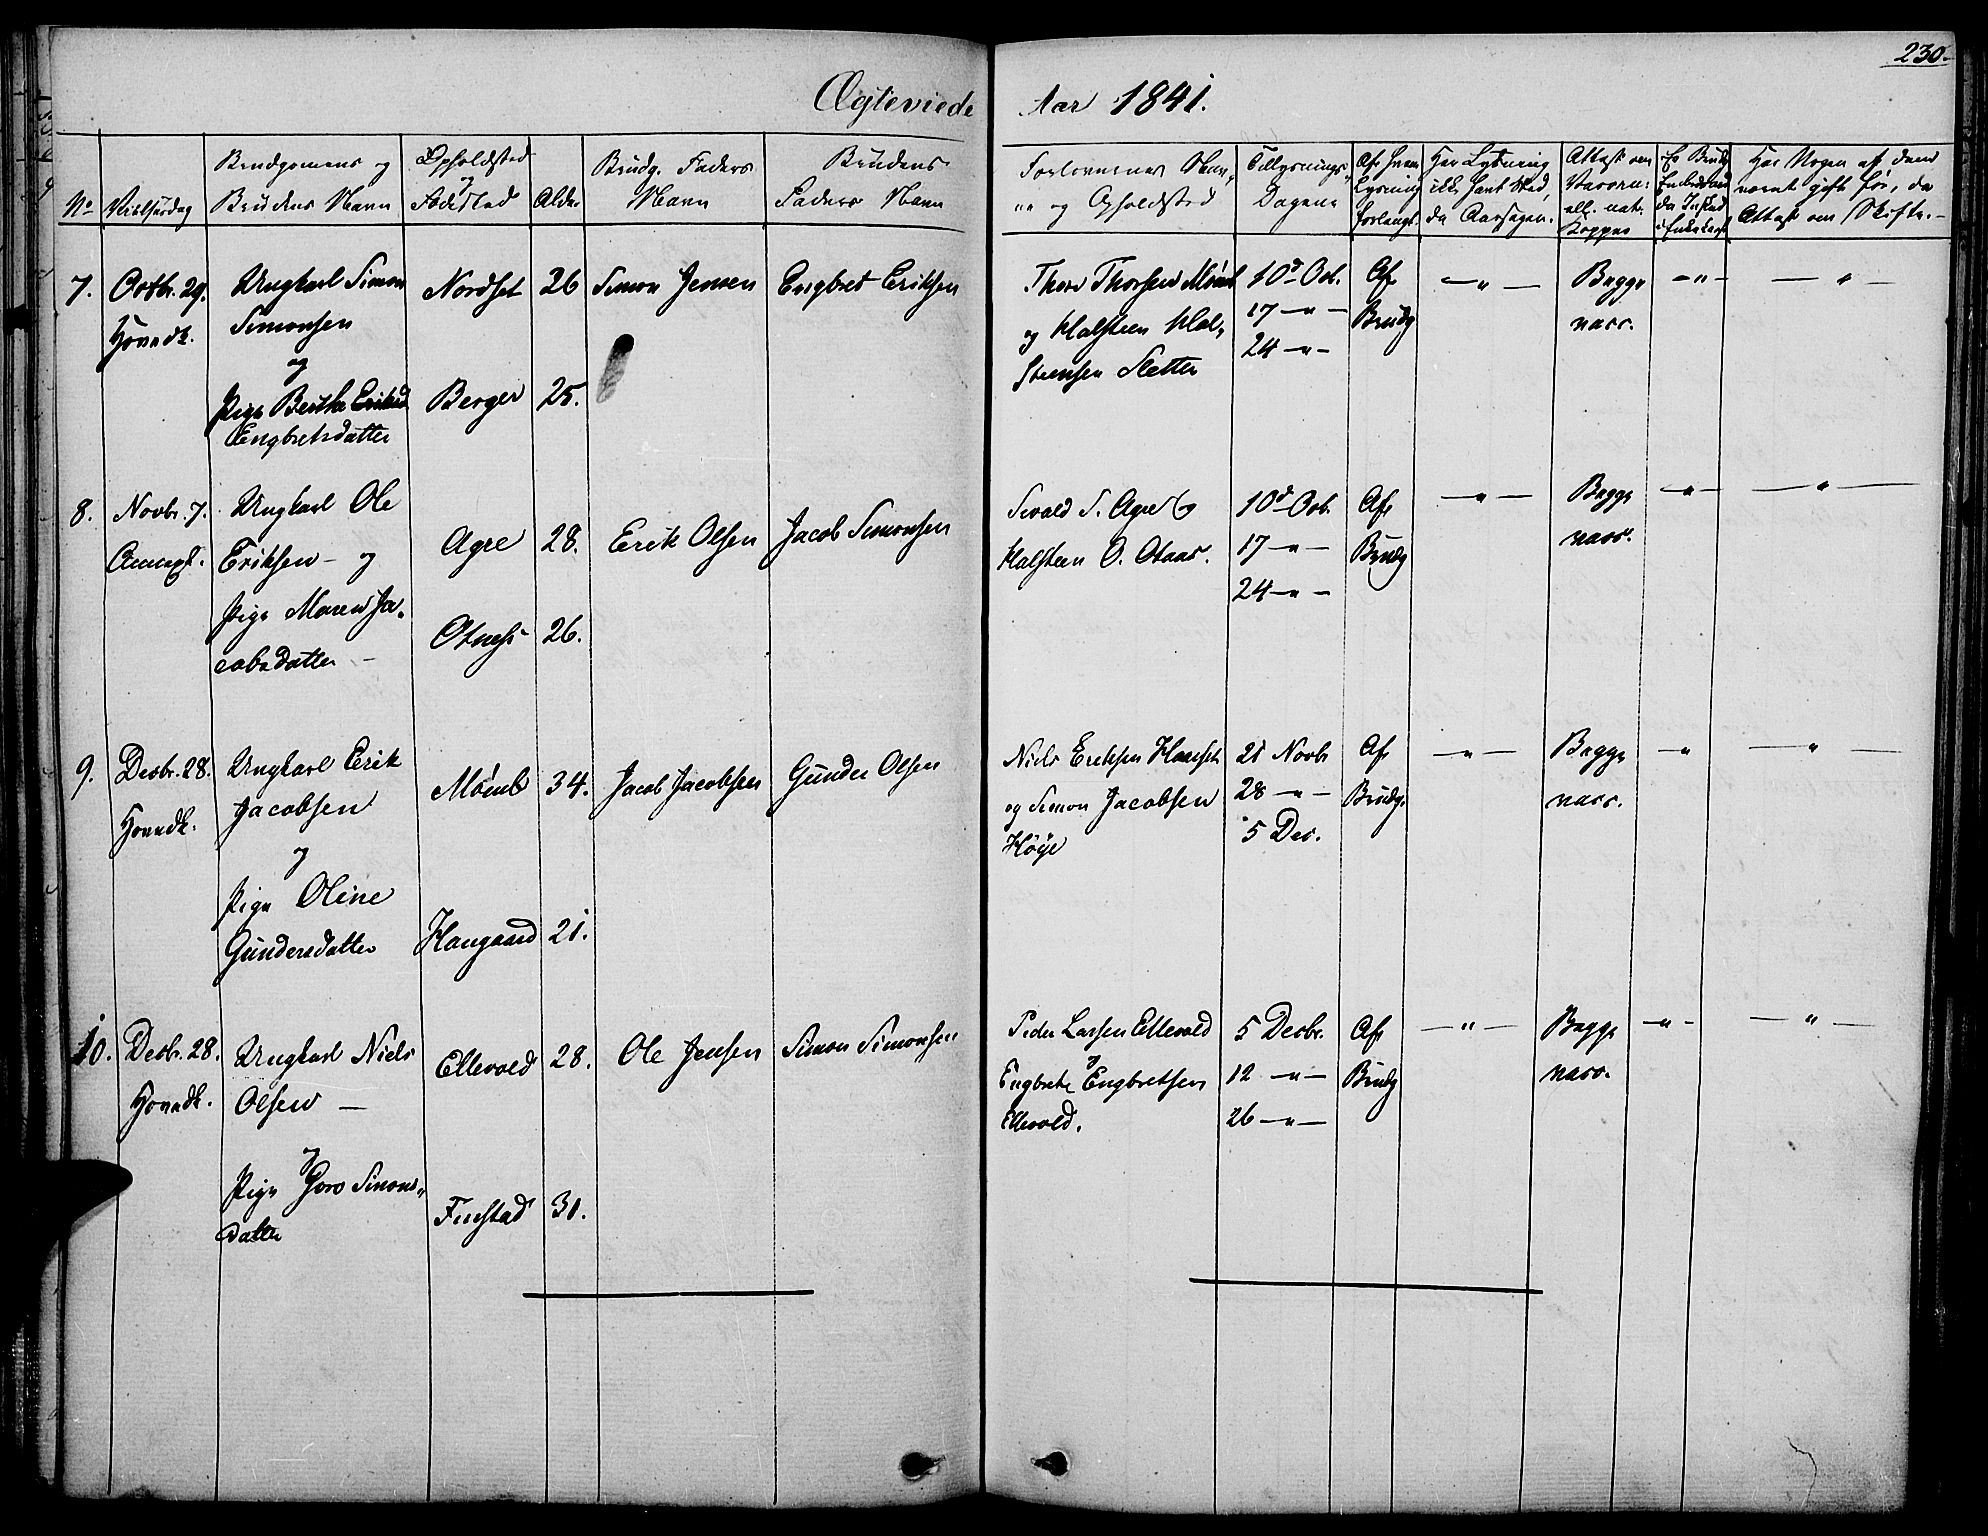 230.
Ægteviede Aar 1841.
No
Vielsesdag
Brudgomens og
Brudens Navn
Opholdsted
og
Fødested
Alder
Brudg. Faders
Navn
Brudens
Faders Navn
Forlovernes Nav-
ne og Opholdsted
Tillysnings-
Dagene
Af hvem
Lysning
forlangt.
Har Lysning
ikke havt Sted,
da Aarsagen.
Attest om
Vaccin:
ell. nat.
Kopper
Har Nogen af dem
været gift før, da
Attest om Skifte.-
7.
Octbr. 29.
Hovedk.
Ungkarl Simon
Simonsen
og
Pige Berthe
Engbretsdatter
Nordset
Berger
26
25.
Simon Jensen
Engbret Eriksen
Thore Thorsen
og Halsteen Hal-
steensen Sletten
10d Oct.
17 — " —
24 — " —
Af
Brudg
— " —
Begge
vacc.
— " —
— " —
8.
Novbr. 7.
Annext.
Ungkarl Ole
Eriksen - og
Pige Maren Ja-
cobsdatter -
Agre
Otnes
28.
26.
Erik Olsen
Jacob Simonsen
Sivald S. Agre og
Halsteen O. Otnes.
10d Oct.
17 — " —
24 — " —
Af
Brudg
— " —
Begge
vacc.
— " —
— " —
9.
Decbr. 28.
Hovedk.
Ungkarl Erik
Jacobsen
og
Pige Oline
Gundersdatter
Haugaard
34.
21.
Jacob Jacobsen
Gunder Olsen
Niels Eriksen Haarset
og Simon Jacobsen
Høye
21 Novbr
28 — " —
5 Dec.
Af
Brudg.
— " —
Begge
vacc.
— "
— " —
10.
Decbr. 28.
Hovedk.
Ungkarl Niels
Olsen —
og
Pige Goro Simons-
datter
Ellevold
Finstad
28.
31.
Ole Jensen
Simon Simonsen
Peder Larsen Ellevold
og
Engbret Engbretsen
Ellevold.
5 Decbr.
12 — " —
26 — " —
Af
Brudg
— " —
Begge
vacc.
— " —
— " —